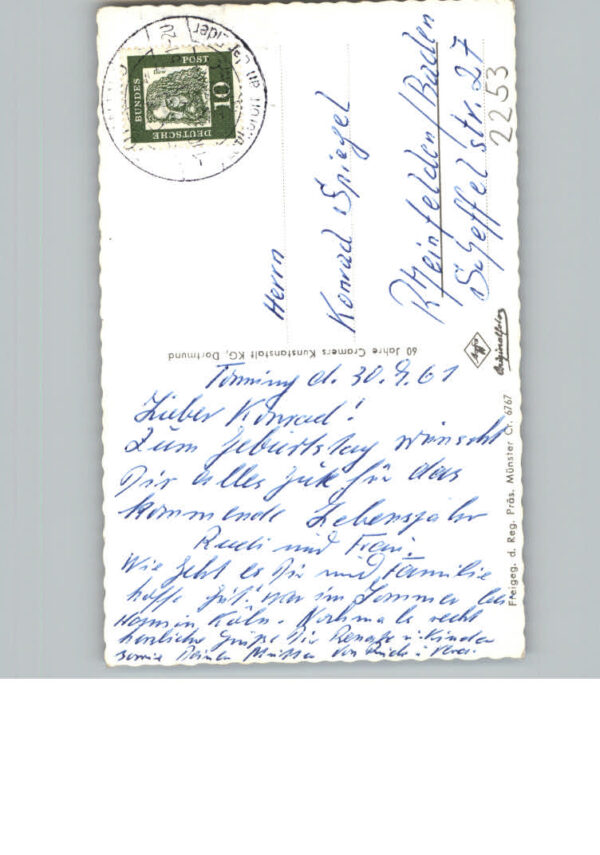 DEUTSCHE
BUNDES
POST
10
Herrn
Konrad Spiegel
Rheinfelden/Baden
Scheffelstr. 27
2253
60 Jahre Cramers Kunstanstalt KG, Dortmund
Agfa
Originalfoto
Freigeg. d. Reg. Präs. Münster Cr. 6767
Tönning d. 30.9.61
Lieber Konrad!
Zum Geburtstag wünscht
Dir alles Gute für das
kommende Lebensjahr
Rudi und Frau.
Wie geht es Dir und Familie
hoffe gut! War im Sommer
in Köln. Nochmals recht
herzliche Grüße Dir Renate u. Kinder
sowie Deiner von